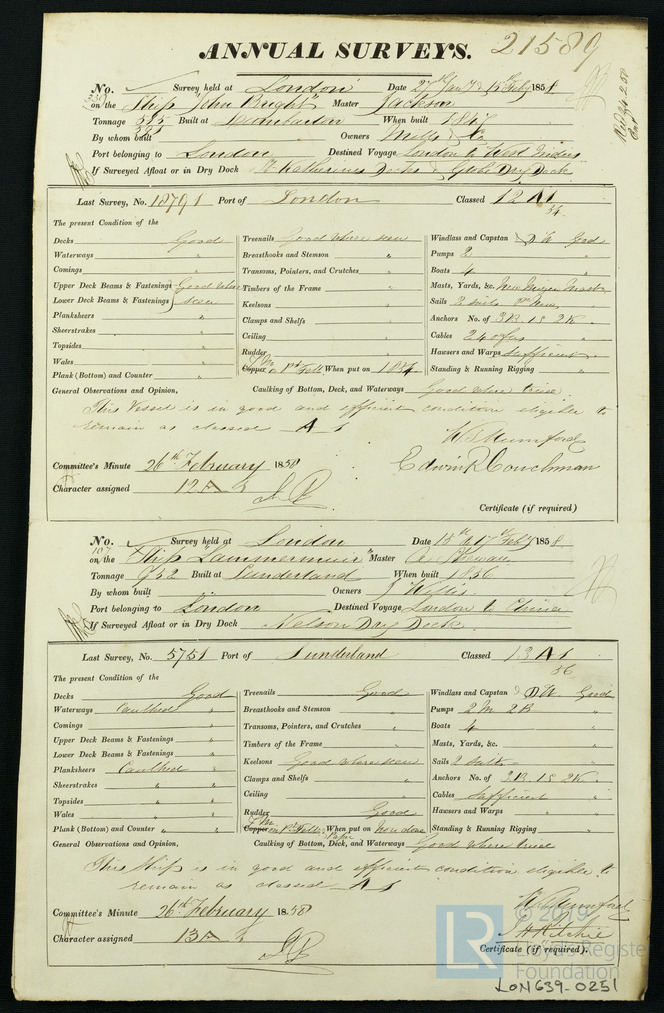 ANNUAL SURVEYS. 21589
No. 330 Survey held at London Date 27th Jany & 15th Feby 1858
on the Ship "John Bright" Master Jackson
Tonnage 525 591 Built at Dumbarton When built 1847
By whom built Owners Mills & Co
Port belonging to London Destined Voyage London to West Indies
If Surveyed Afloat or in Dry Dock St Katherines Docks & Globe Dry Dock
Last Survey, No. 18791 Port of London Classed 12 A 1
54
The present Condition of the
Decks Good Treenails Good where seen Windlass and Capstan D W Good
Waterways " Breasthooks and Stemson " Pumps 2
Comings " Transoms, Pointers, and Crutches " Boats 4
Upper Deck Beams & Fastenings Good where Timbers of the Frame " Masts, Yards, &c. New Mizen Mast
Lower Deck Beams & Fastenings seen Keelsons " Sails 2 suits
Planksheers " Clamps and Shelfs " Anchors No. of 3B. 1S 2K.
Sheerstrakes " Ceiling " Cables 240 fms
Topsides " Rudder " Hawsers and Warps Sufficient
Wales " Y.M. Copper on Pt Felt When put on 1857 Standing & Running Rigging "
Plank (Bottom) and Counter "
General Observations and Opinion, Caulking of Bottom, Deck, and Waterways Good where tried
This Vessel is in good and efficient condition eligible to
remain as classed A 1
W. Mumford
Edwin R Couchman
Committee's Minute 26th February 1858
Character assigned 12 A 1
Certificate (if required)
No. 107 Survey held at London Date 15th & 17th Feby 1858
on the Ship "Lammermuir" Master A. Shewan
Tonnage 952 Built at Sunderland When built 1856
By whom built Owners J Willis
Port belonging to London Destined Voyage London to China
If Surveyed Afloat or in Dry Dock Nelson Dry Dock
Last Survey, No. 5751 Port of Sunderland Classed 13 A 1
56
The present Condition of the
Decks Good Treenails Good Windlass and Capstan D W Good
Waterways Caulked " Breasthooks and Stemson " Pumps 2 M 2B
Comings " Transoms, Pointers, and Crutches " Boats 4
Upper Deck Beams & Fastenings " Timbers of the Frame " Masts, Yards, &c. "
Lower Deck Beams & Fastenings " Keelsons Good where seen Sails 2 suits "
Planksheers Caulked " Clamps and Shelfs " Anchors No. of 3B. 1S 2K. "
Sheerstrakes " " Ceiling " Cables Sufficient "
Topsides " " Rudder Good Hawsers and Warps " "
Wales " " Y.M. Copper on Pt Felt & Paper When put on now done Standing & Running Rigging "
Plank (Bottom) and Counter " "
General Observations and Opinion, Caulking of Bottom, Deck, and Waterways Good where tried
This Ship is in good and efficient condition eligible to
remain as classed A 1
W. Mumford
J H Ritchie
Committee's Minute 26th February 1858
Character assigned 13 A 1
Certificate (if required).
LR © 2019
Lloyd's Register
Foundation
LON639-0251